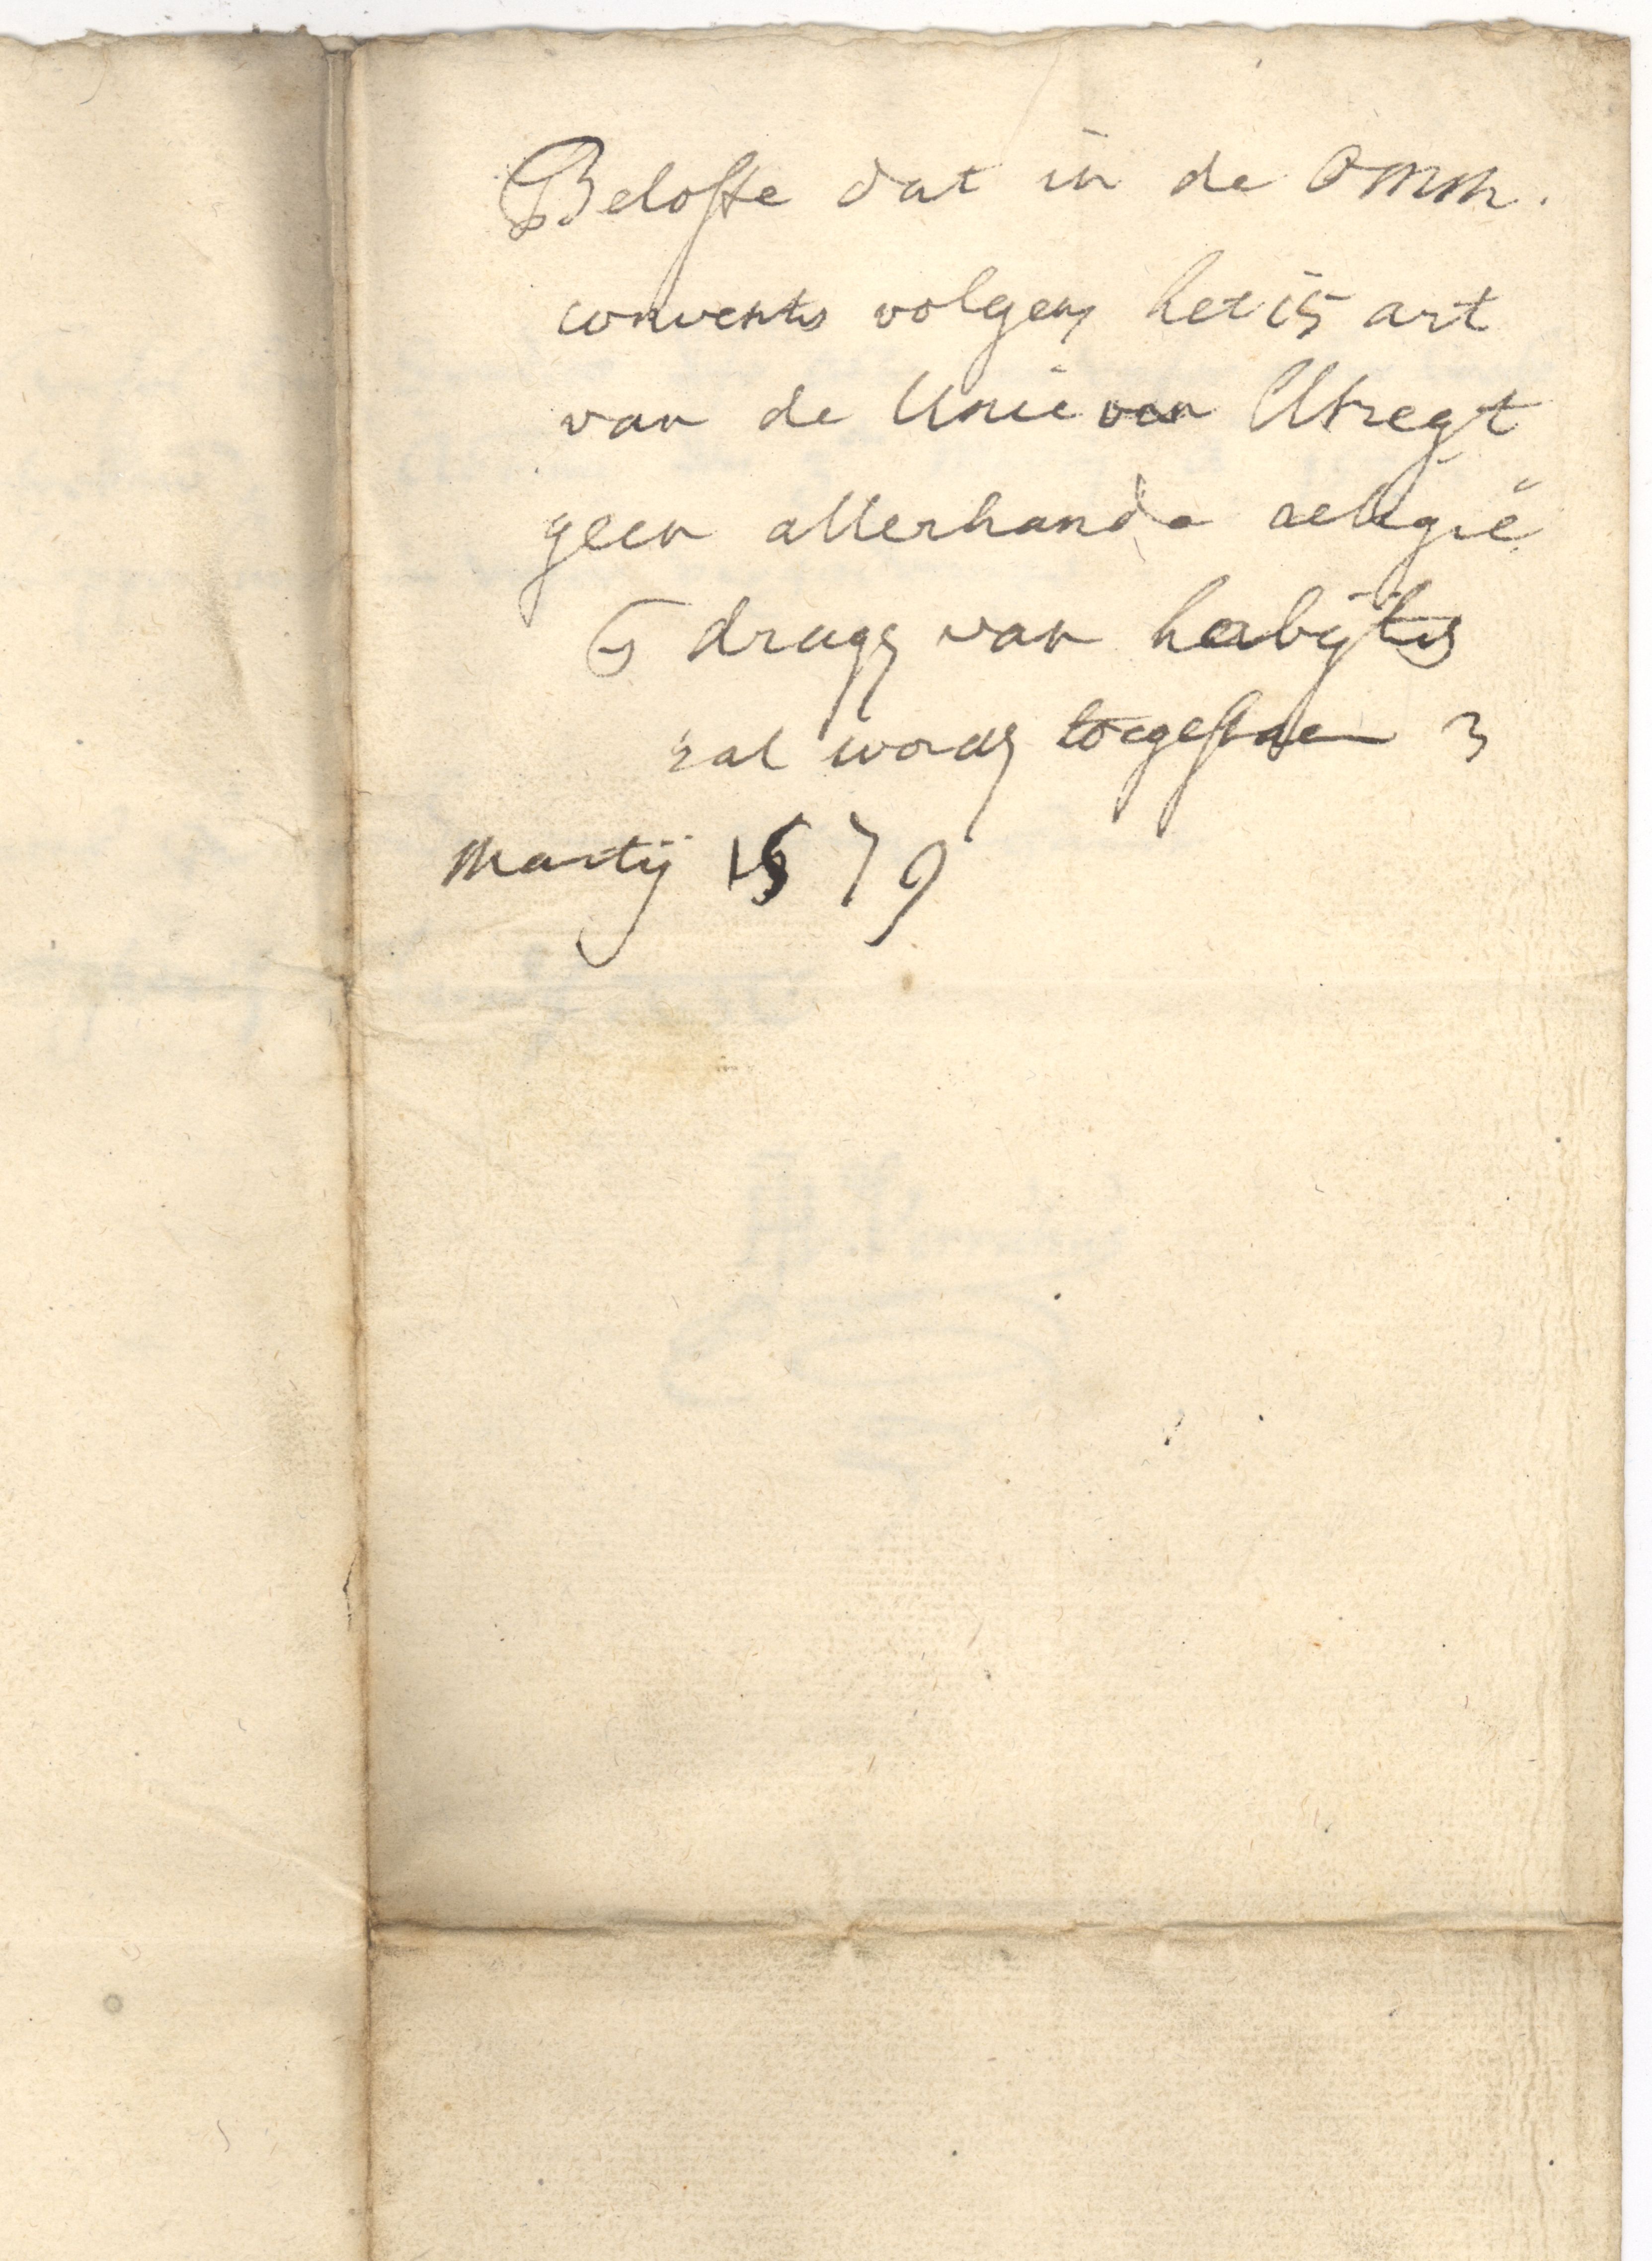 Belofte dat in de Omm.
convents volgens het 15 art
van de Unie van Utregt
geen allerhande religie
dragen van habijten
zal worden toegestaen 3
Martij 1579